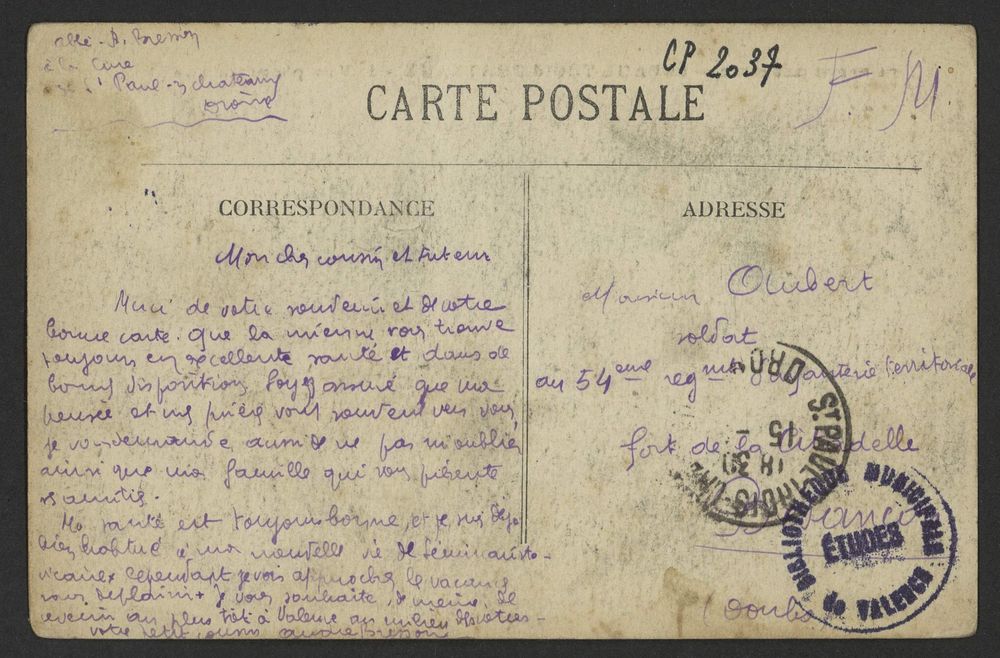 abbé A. Bresson
à la Cure
St Paul-3-chateaux
Drôme
CP 2037
F. M
CARTE POSTALE
CORRESPONDANCE
ADRESSE
Mon cher cousin et tuteur
Merci de votre souvenir et de votre
bonne carte. Que la mienne vous trouve
toujours en excellente santé et dans de
bonnes dispositions. Soyez assuré que ma
pensée et mes prières vont souvent vers vous
je vous demande aussi de ne pas m'oublier
ainsi que ma famille qui vous présente
ses amitiés.
Ma santé est toujours bonne, et je suis déjà
bien habitué à ma nouvelle vie de séminariste-
vicaire. Cependant je vois approcher les vacances
sans déplaisir. Je vous souhaite de même de
revenir au plus tôt à Valence au milieu des vôtres-
votre petit cousin André Bresson
Monsieur Oubert
soldat
au 54eme regmt d'infanterie territoriale
fort de la citadelle
Besançon
(Doubs)
ST PAUL-TROIS-CHATEAUX
DROME
15
BIBLIOTHEQUE MUNICIPALE
ÉTUDES
de VALENCE